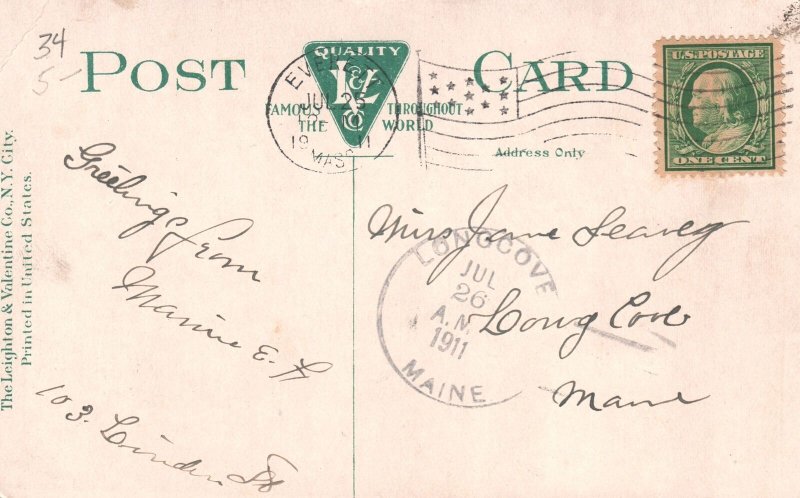 34
5
POST CARD
QUALITY
L&V
FAMOUS THROUGHOUT
THE WORLD
JUL 25
19 11
MASS
Address Only
U.S. POSTAGE
ONE CENT
The Leighton & Valentine Co., N.Y. City.
Printed in United States.
Greetings from
E.
103 Linden St
Miss Jane Leavey
Long Cove
Maine
LONGCOVE
JUL
26
A.M.
1911
MAINE